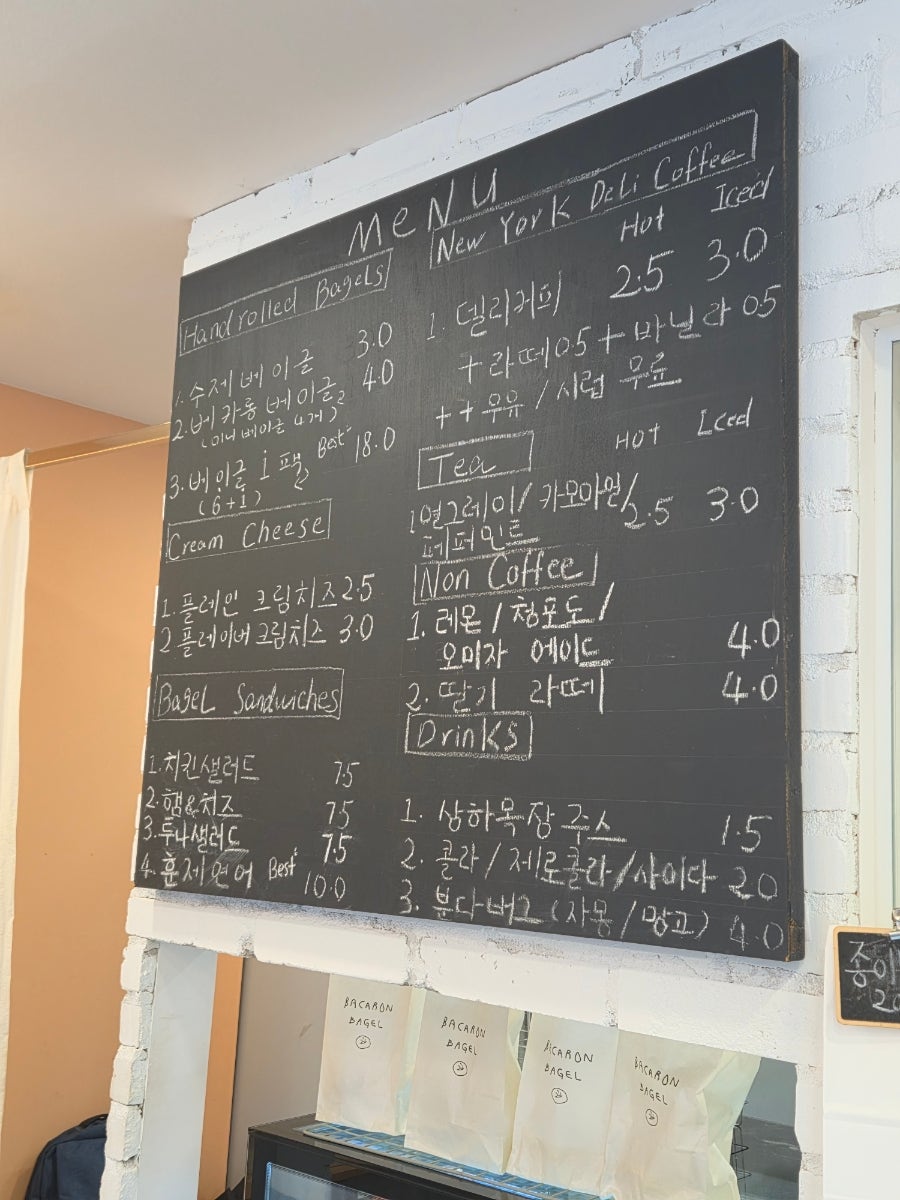 MeNU
Handrolled Bagels
1. 수제 베이글 3.0
2. 베카롱 베이글 4.0
(미니 베이글 4개)
3. 베이글 1팩 Best 18.0
(6+1)
Cream Cheese
1. 플레인 크림치즈 2.5
2 플레이버 크림치즈 3.0
Bagel Sandwiches
1. 치킨샐러드 7.5
2. 햄&치즈 7.5
3. 투나샐러드 7.5
4. 훈제연어 Best 10.0
New York Deli Coffee
Hot Iced
1. 델리커피 2.5 3.0
+ 라떼 0.5 + 바닐라 0.5
++ 우유 / 시럽 무료
Tea Hot Iced
1 얼그레이/ 카모마일/ 2.5 3.0
페퍼민트
Non Coffee
1. 레몬 / 청포도 /
오미자 에이드 4.0
2. 딸기 라떼 4.0
Drinks
1. 상하목장 주스 1.5
2. 콜라 / 제로콜라 / 사이다 2.0
3. 분다버그 (자몽 / 망고) 4.0
종이
20
BACARON
BAGEL
BACARON
BAGEL
BACARON
BAGEL
BACARON
BAGEL